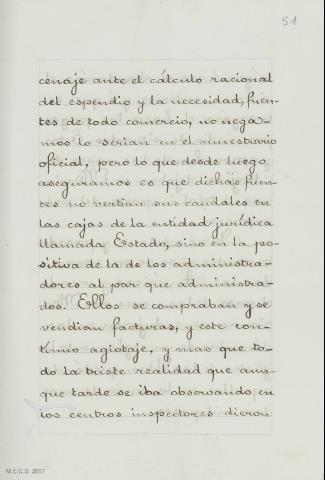 51
cenaje ante el cálculo racional
del espendio y la necesidad, fuen-
tes de todo comercio, no nega-
mos lo serian en el muestrario
oficial, pero lo que desde luego
aseguramos es que dichas fuen-
tes no vertian sus caudales en
las cajas de la entidad jurídica
llamada Estado, sino en la po-
sitiva de la de los administra-
dores al par que administra-
dos. Ellos se compraban y se
vendian facturas, y este con-
tínuo agiotaje, y mas que to-
do la triste realidad que aun-
que tarde se iba observando en
los centros inspectores dieron
M.E.C.D. 2017